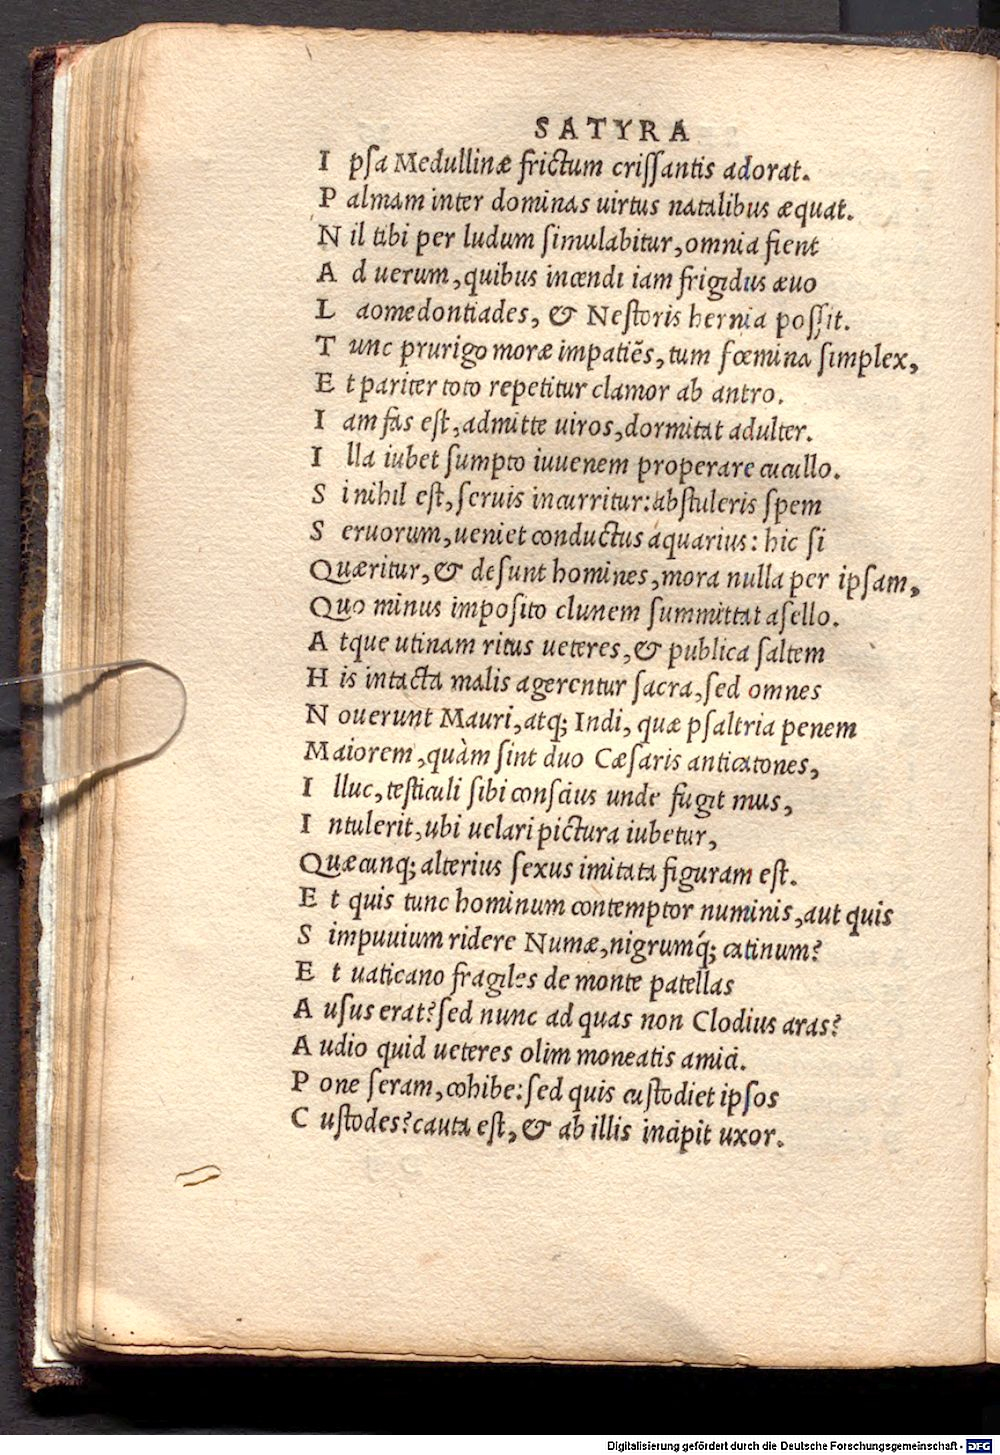 SATYRA
I psa Medullinæ frictum crissantis adorat.
P almam inter dominas uirtus natalibus æquat.
N il tibi per ludum simulabitur, omnia fient
A d uerum, quibus incendi iam frigidus æuo
L aomedontiades, & Nestoris hernia possit.
T unc prurigo moræ impatiẽs, tum fœmina simplex,
E t pariter toto repetitur clamor ab antro.
I am fas est, admitte uiros, dormitat adulter.
I lla iubet sumpto iuuenem properare cucullo.
S i nihil est, seruis incurritur: abstuleris spem
S eruorum, ueniet conductus aquarius: hic si
Quæritur, & desunt homines, mora nulla per ipsam,
Quo minus imposito clunem summittat asello.
A tque utinam ritus ueteres, & publica saltem
H is intacta malis agerentur sacra, sed omnes
N ouerunt Mauri, atq; Indi, quæ psaltria penem
Maiorem, quàm sint duo Cæsaris anticatones,
I lluc, testiculi sibi conscius unde fugit mus,
I ntulerit, ubi uelari pictura iubetur,
Quæcunq; alterius sexus imitata figuram est.
E t quis tunc hominum contemptor numinis, aut quis
S impuuium ridere Numæ, nigrumq́; catinum?
E t uaticano fragiles de monte patellas
A usus erat? sed nunc ad quas non Clodius aras?
A udio quid ueteres olim moneatis amici.
P one seram, cohibe: sed quis custodiet ipsos
C ustodes? cauta est, & ab illis incipit uxor.
Digitalisierung gefördert durch die Deutsche Forschungsgemeinschaft - DFG